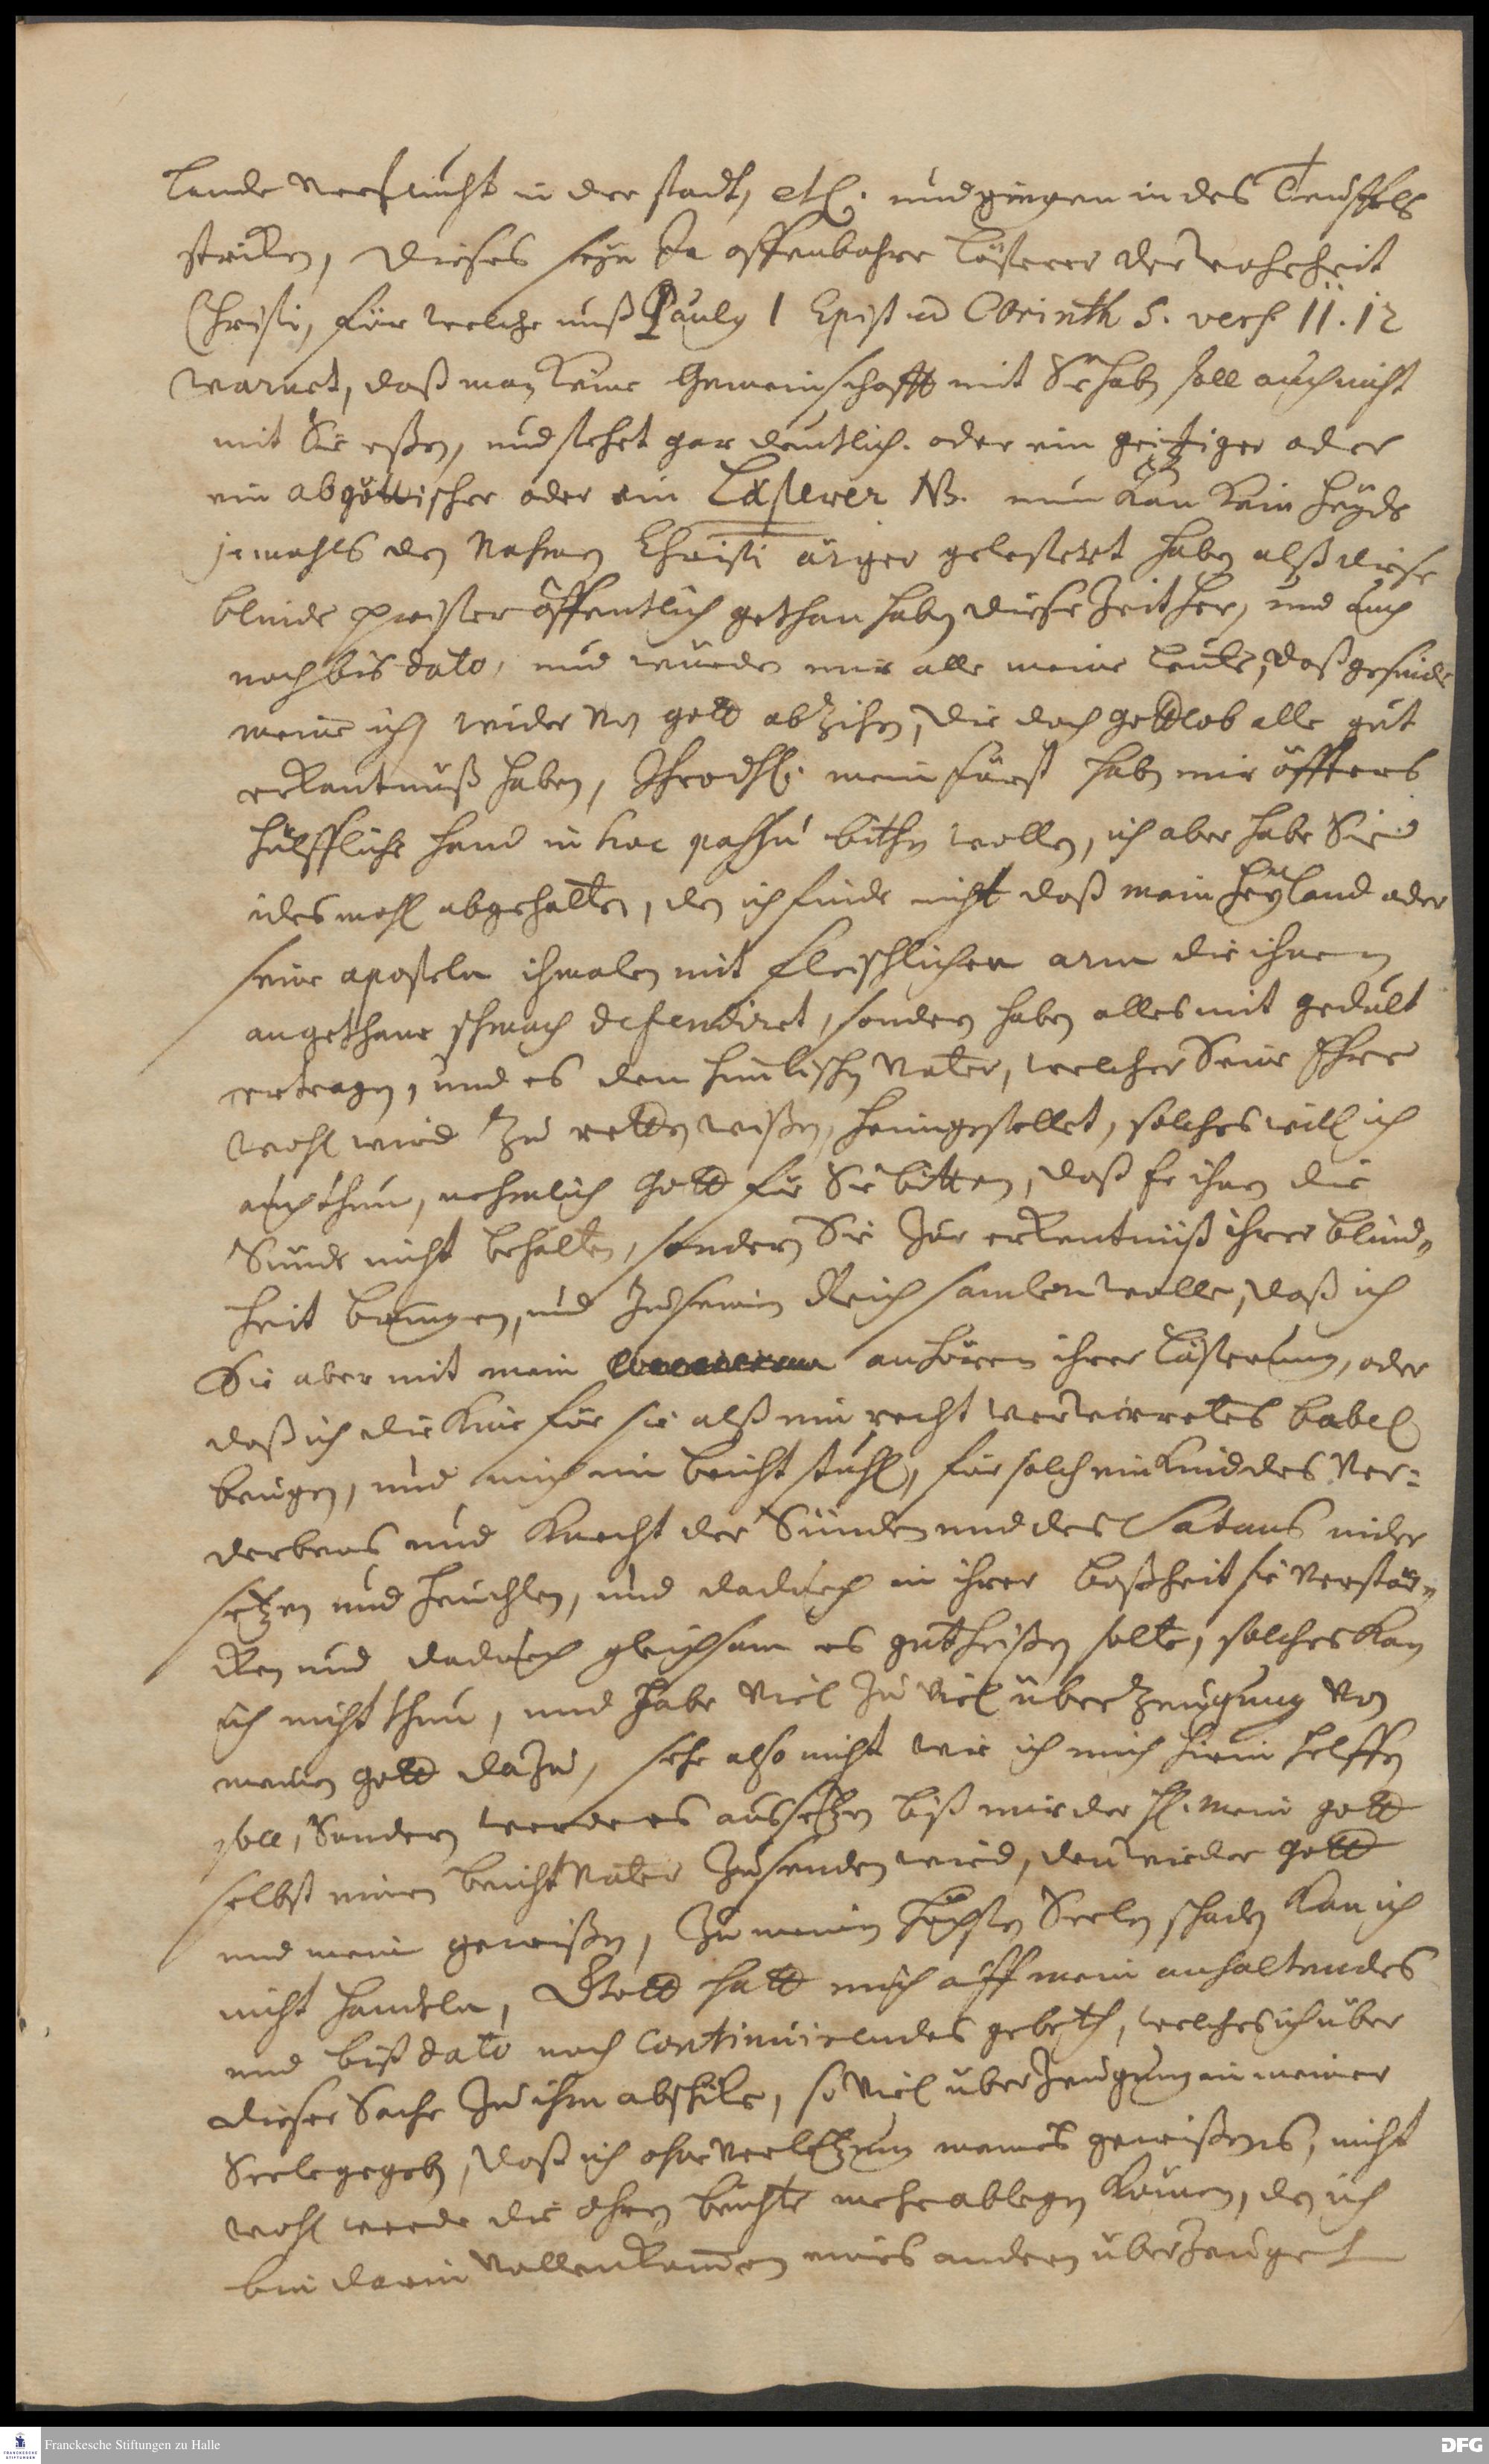 Lande verflucht in der stadt, etc. und gingen in des Teuffels
striken, dieses seyn Ja offenbahre Lästerer der wahrheit
Christi, für welche unß Pauly 1 Epist ad Corinth 5. vers. 11. 12
warnet, daß man keine Gemeinschafft mit Sie haben soll auch nicht
mit Sie eßen, und stehet gar deutlich. oder ein geitziger oder
ein abgöttischer oder ein Lästerer NB. nun kan kein Heyde
jemahls den Nahmen Christi ärger gelestert haben alß diese
blinde priester öffentlich gethan haben diese Zeit her, und auch
noch bis dato, und würden mir alle meine leute, daß gesinde
meine ich, wider von gott abzihen, die doch gottlob alle gut
erkantnuß haben, mein fürst haben mir öffters
hülffliche hand in hoc passu bithen wollen, ich aber habe Sie
idesmahl abgehalten, den ich finde nicht daß mein Heyland oder
seine aposteln ihmalen mit fleischlichen arm die ihnen
angethane schmach defendiret, sondern haben alles mit gedult
ertragen, und es dem himlischen Vater, welcher Seine Ehre
wohl wird zu retten wißen, heimgestellet, solches will ich
auch thun, nehmlich Gott für Sie bitten, daß Er ihnen die
Sünde nicht behalten, sondern Sie zur erkentnüß ihrer blind„
heit bringen, und zu seinen Reich samlen wolle, daß ich
Sie aber mit mein anhören ihrer lästerung, oder
daß ich die Knie für sie alß ein recht verwirretes babel
beugen, und mich im beicht stuhl, für solch ein Kind des Ver:
derbens und Knecht der Sünden und des Satans nider
setzen und heuchlen, und dadurch in ihrer boßheit sie verstär„
ken und dadurch gleichsam es gutheißen solte, solches kan
ich nicht thun, und habe viel zu viel überzeugung von
meinen gott dazu, sehe also nicht wie ich mich hirin helffen
soll, Sondern werde es aussetzen biß mir der H. mein gott
selbst einen beicht Vater zusenden wird, den wieder gott
und mein gewißen, zu meinen höchsten Seelen schaden kan ich
nicht handeln, Gott hatt mich auff mein anhaltendes
und biß dato noch continuirendes gebeth, welches ich über
dieser Sache zu ihm abschike, so viel überzeugung in meiner
Seele gegeben, daß ich ohne verletzung meines gewißens, nicht
wohl werde die ohren beichte mehr ablegen können, den ich
bin darin vollenkommen eines andern überzeuget
Franckesche Stiftungen zu Halle
DFG